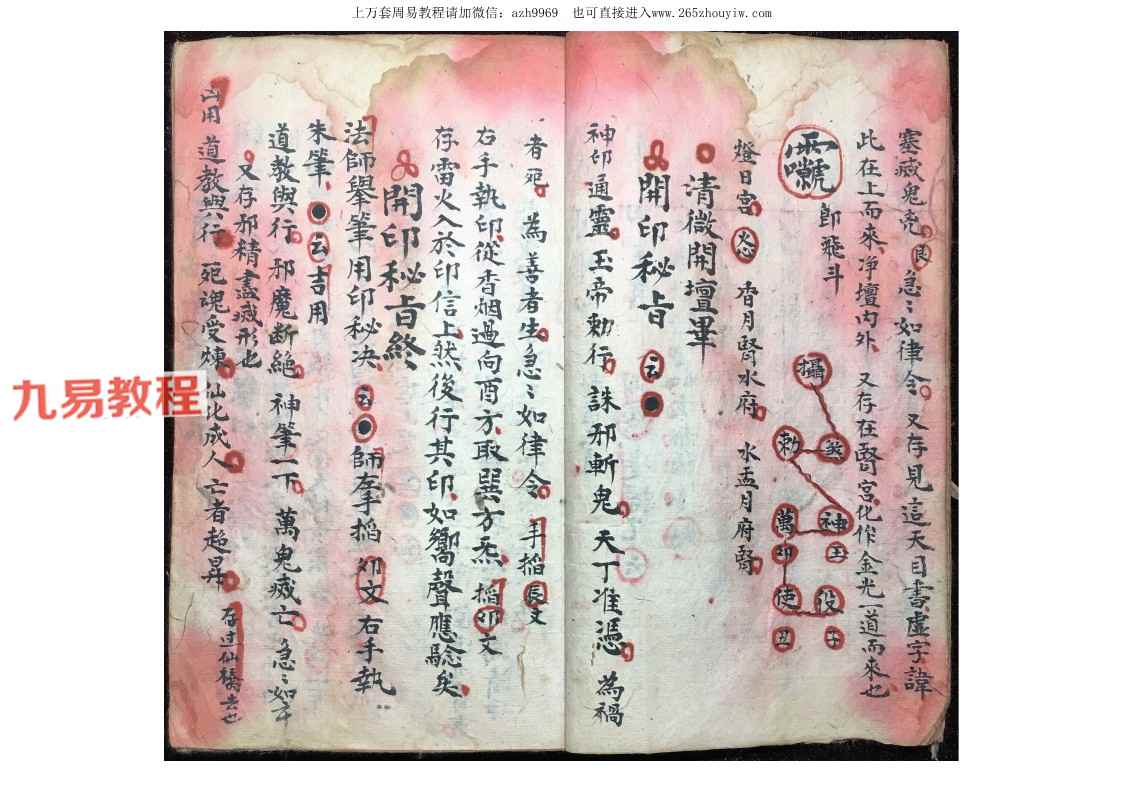 上万套周易教程请加微信：azh9969　也可直接进入www.265zhouyiw.com
塞滅鬼 急〻如律令 又存見這天目書虛字諱
此在上而來净壇內外 又存在腎宮化作金光一道而來也
即飛斗
攝
勅
萬 神
卯 玉
使 役
丑 子
燈日宮 香月腎水府 水盂月府腎
清微開壇畢
開印秘旨 云
神印通靈 玉帝勅行 誅邪斬鬼 天丁准憑 為禍
者死 為善者生急〻如律令 手搯辰文
右手執印從香烟過向酉方取巽方炁 搯卯文
存雷火入於印信上然後行其印如嚮聲應騐矣
開印秘旨終
法師舉筆用印秘决 云 師左手搯卯文右手執
朱筆 云吉用
道教興行 邪魔断絕 神筆一下 萬鬼滅亡 急〻如令
又存邪精盡滅形也
凶用 道教興行 死魂受煉 仙化成人 亡者超昇 存过仙橋去也
九易教程